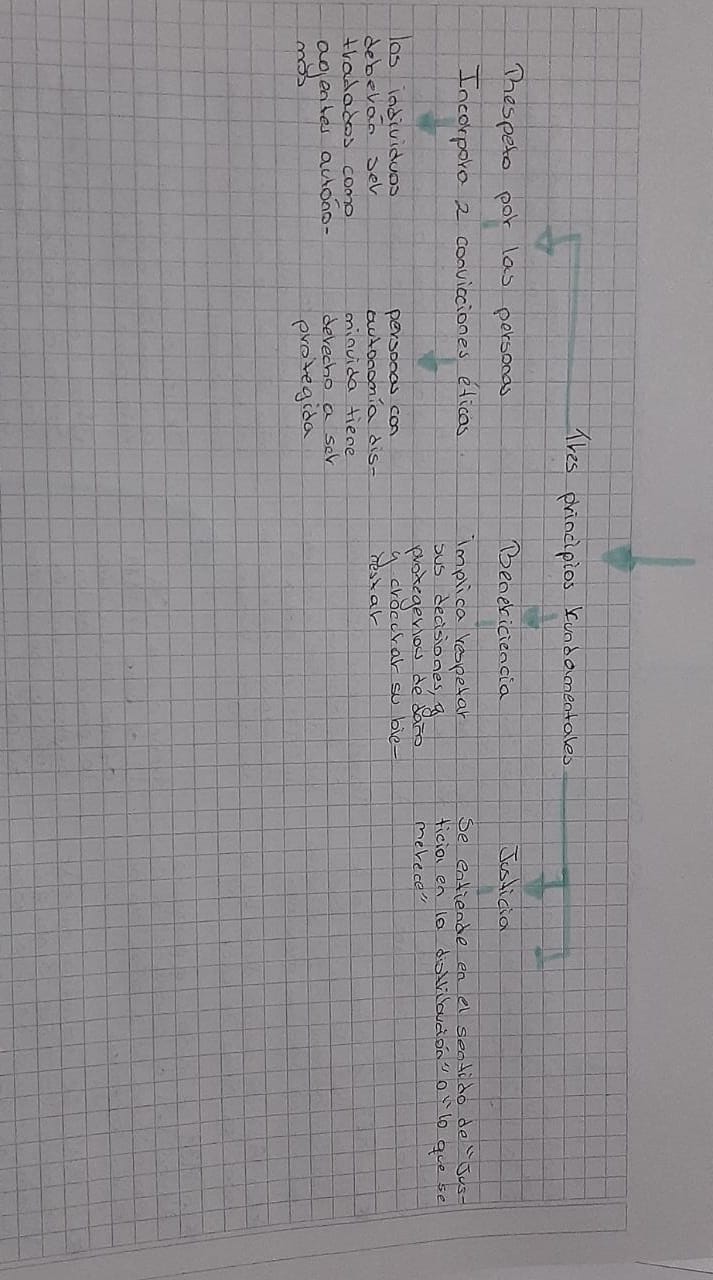 Tres principios fundamentales
Respeto por las personas
Incorpora 2 convicciones éticas.
los individuos
deberán ser
tradados como
agentes autóno-
mos
personas con
autonomía dis-
minuida tiene
derecho a ser
protegida
Beneficiencia
implica respetar
sus decisiones, y
protegerlos de daño
y procurar su bie-
nestar
Justicia
Se entiende en el sentido de "Jus-
ticia en la distribución" o "lo que se
merece"